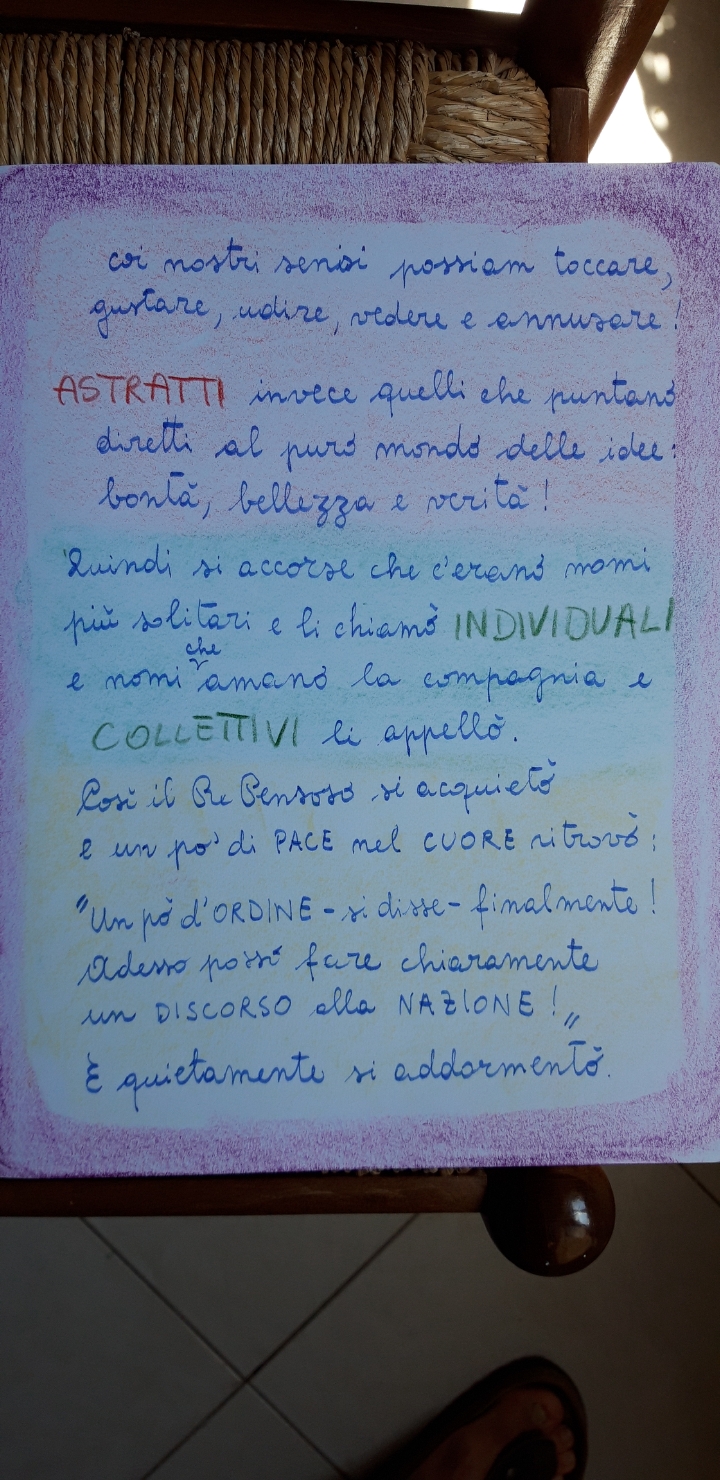 coi nostri sensi possiam toccare,
gustare, udire, vedere e annusare!
ASTRATTI invece quelli che puntano
diretti al puro mondo delle idee:
bontà, bellezza e verità!
Quindi si accorse che c'erano nomi
più solitari e li chiamò INDIVIDUALI
che
e nomi amano la compagnia e
COLLETTIVI li appellò.
Così il Re Pensoso si acquietò
e un po' di PACE nel CUORE ritrovò:
"Un pò d'ORDINE - si disse - finalmente!
Adesso posso fare chiaramente
un DISCORSO alla NAZIONE!"
E quietamente si addormentò.